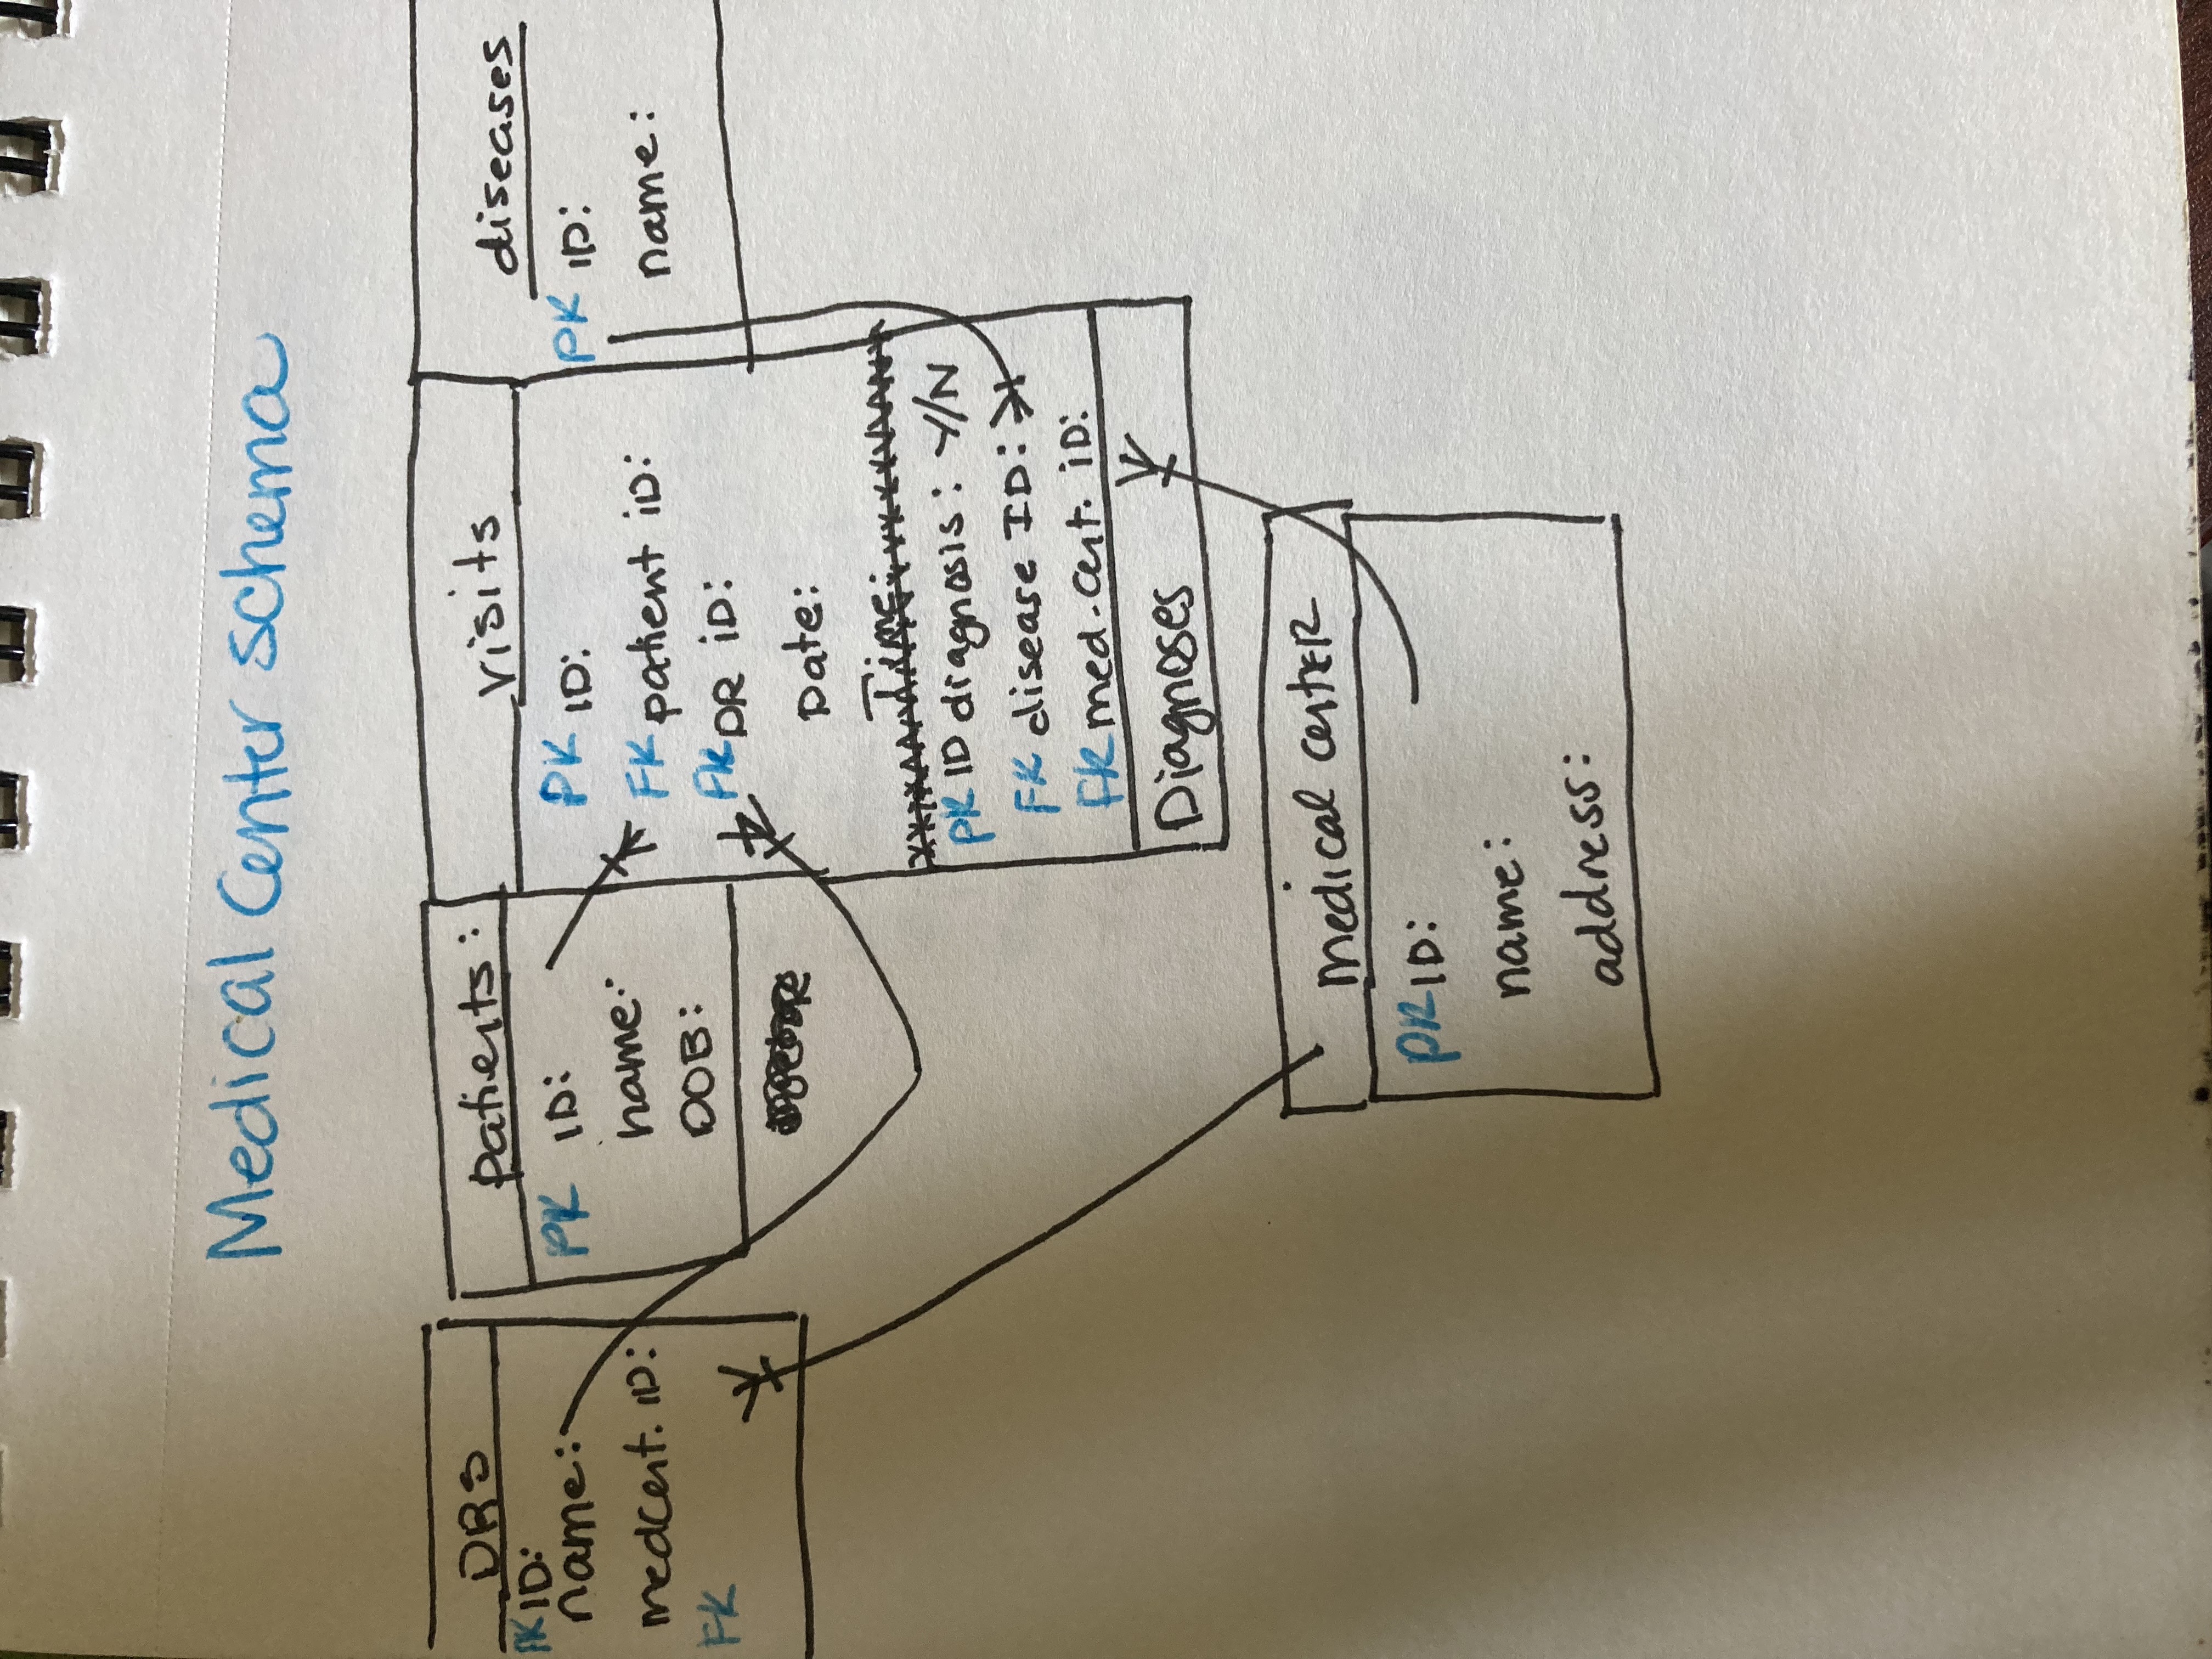 Medical Center schema
DRS
PK ID:
name:
medcert. ID:
FK
patients:
PK ID:
name:
DOB:
visits
PK ID:
FK patient iD:
FK DR iD:
Date:
Time:
PK ID diagnosis: Y/N
FK disease ID:
FK med.cert. iD:
Diagnoses
diseases
PK ID:
name:
medical centER
PK ID:
name:
address: